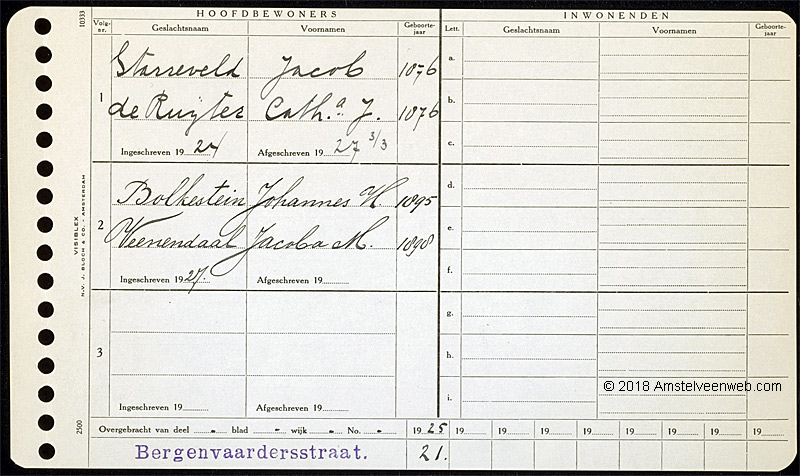 HOOFDBEWONERS INWONENDEN
10333
Volg-nr. Geslachtsnaam Voornamen Geboorte-jaar Lett. Geslachtsnaam Voornamen Geboorte-jaar
1
Starreveld Jacob 1876
de Ruijter Cath.a J. 1876
Ingeschreven 1924 Afgeschreven 1927 3/3
2
Bolkestein Johannes H. 1895
Veenendaal Jacoba M. 1898
Ingeschreven 1927. Afgeschreven 19
3
Ingeschreven 19 Afgeschreven 19
a.
b.
c.
d.
e.
f.
g.
h.
i.
VISIBLEX
N.V. J. BLOCH & CO. - AMSTERDAM
2500
© 2018 Amstelveenweb.com
Overgebracht van deel - blad - wijk - No. - 1925 19 19 19 19 19 19 19 19
Bergenvaardersstraat. 21.